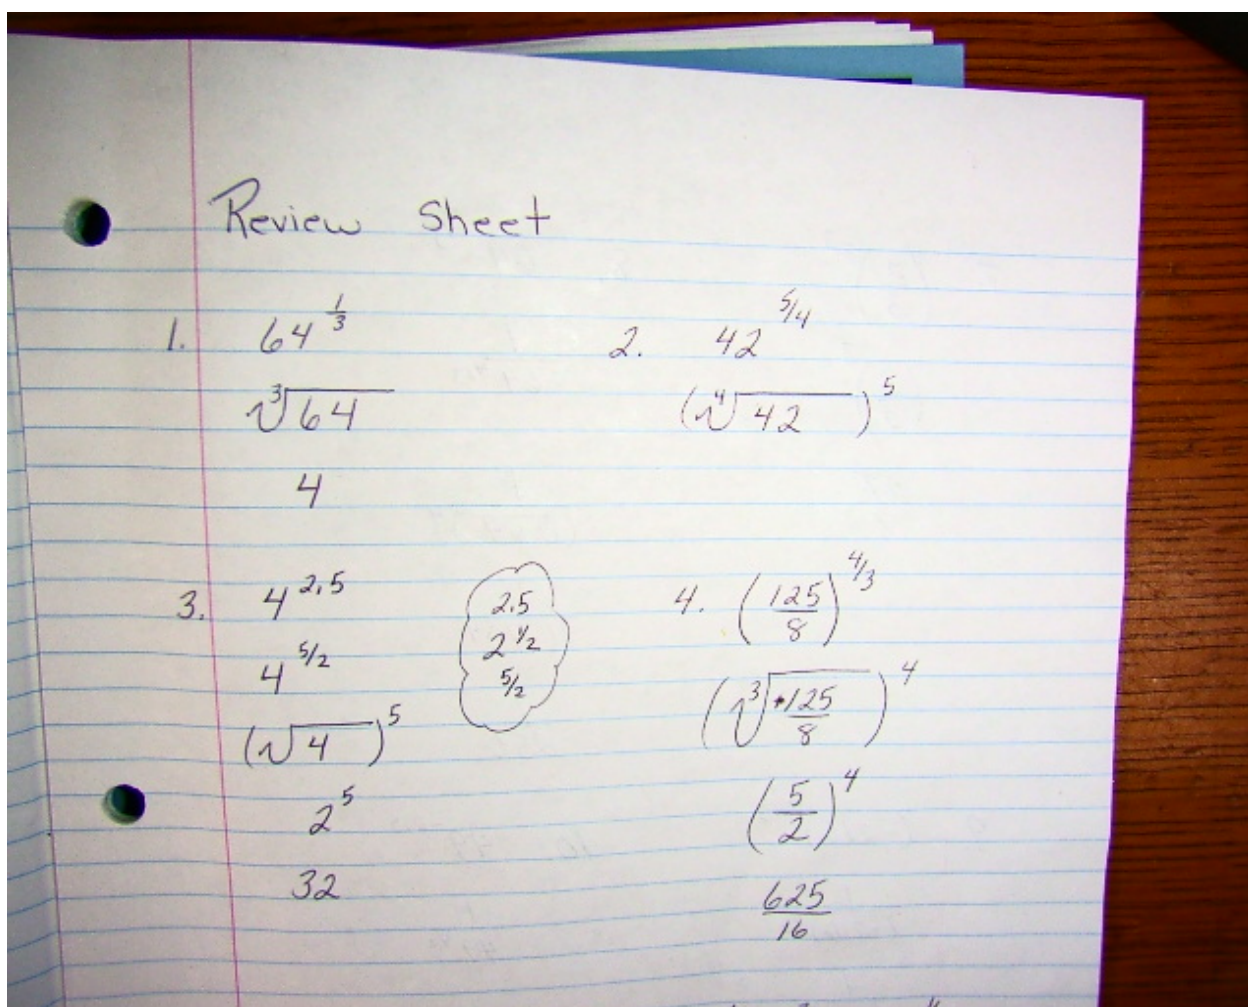 Review Sheet
1. 64^(1/3)
∛64
4
2. 42^(5/4)
(∜42)^5
3. 4^(2.5)
4^(5/2)
(√4)^5
2^5
32
2.5
2 1/2
5/2
4. (125/8)^(4/3)
(∛(+125/8))^4
(5/2)^4
625/16